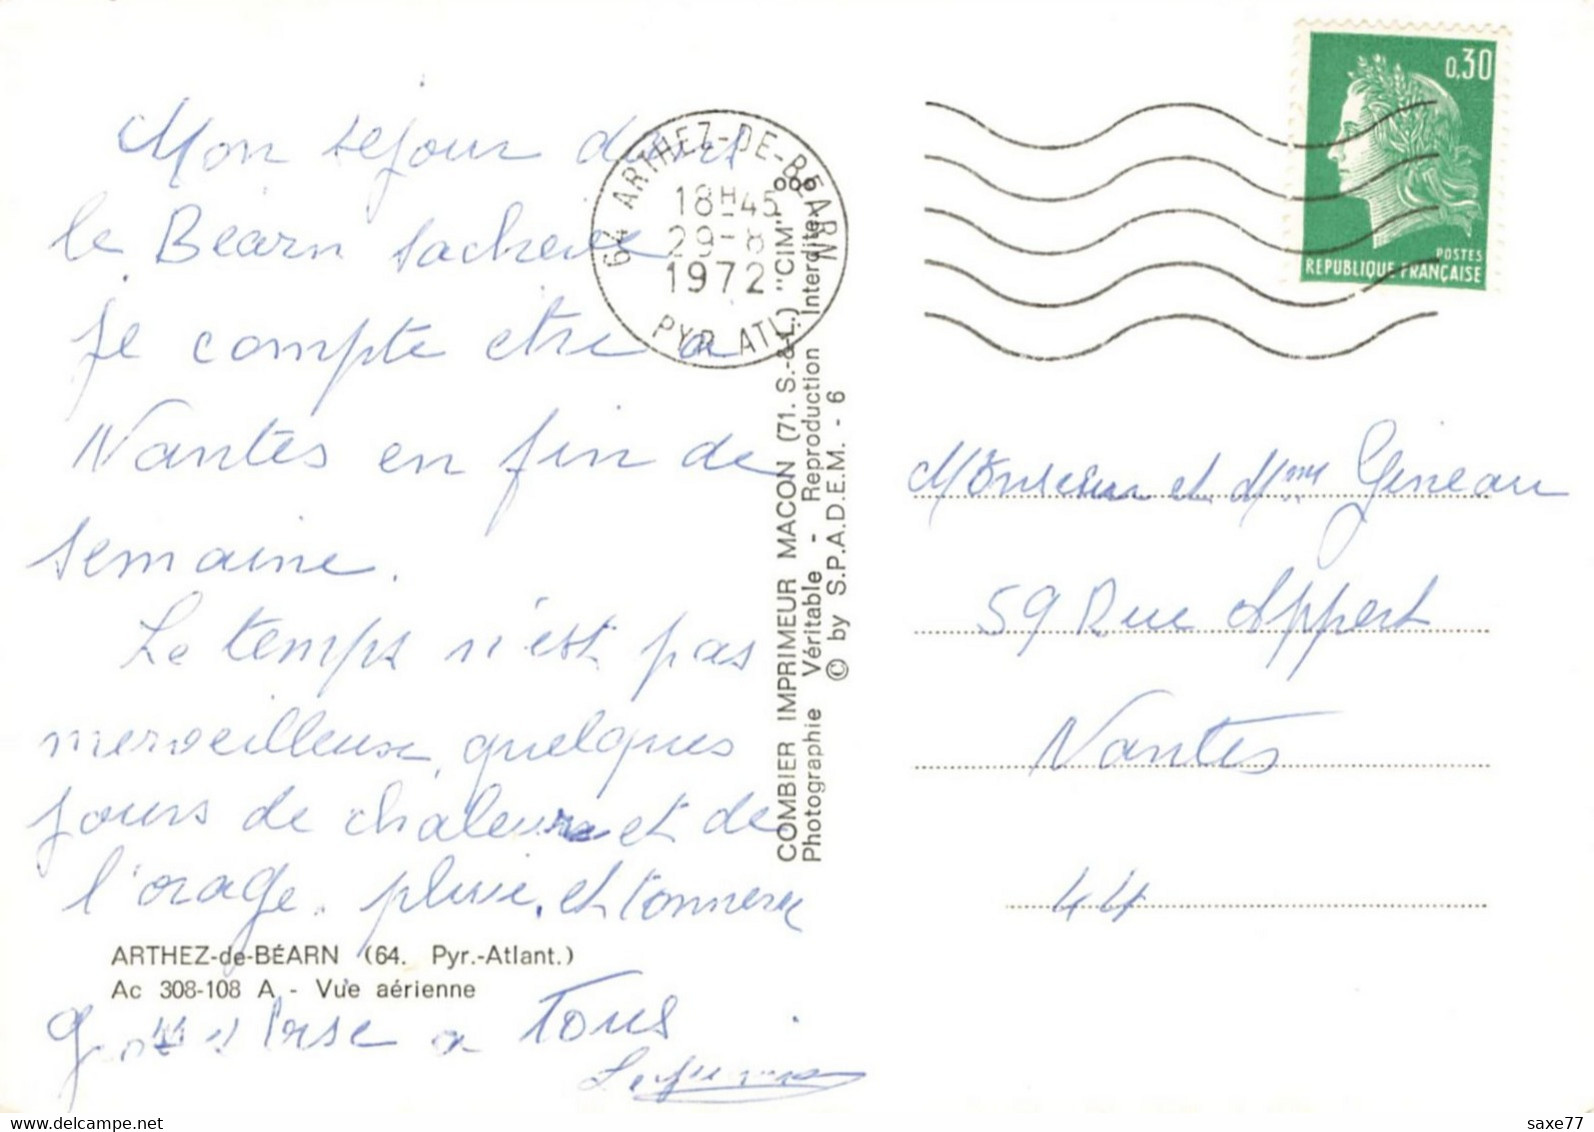 Mon sejour dans
le Béarn sacheve
je compte etre a
Nantes en fin de
semaine.
Le temps n'est pas
merveilleux, quelques
jours de chaleur et de
l'orage. pluie. et tonnerre
ARTHEZ-de-BÉARN (64. Pyr.-Atlant.)
Ac 308-108 A - Vue aérienne
a Tous
64 ARTHEZ-DE-BEARN
18H45
29-8
1972
PYR. ATL.
COMBIER IMPRIMEUR MACON (71. S.-&-L.) "CIM"
Photographie Véritable - Reproduction Interdite
© by S.P.A.D.E.M. - 6
0,30
POSTES
REPUBLIQUE FRANÇAISE
Monsieur et Mme Gineau
59 Rue Appert
Nantes
44
Delcampe.net
saxe77